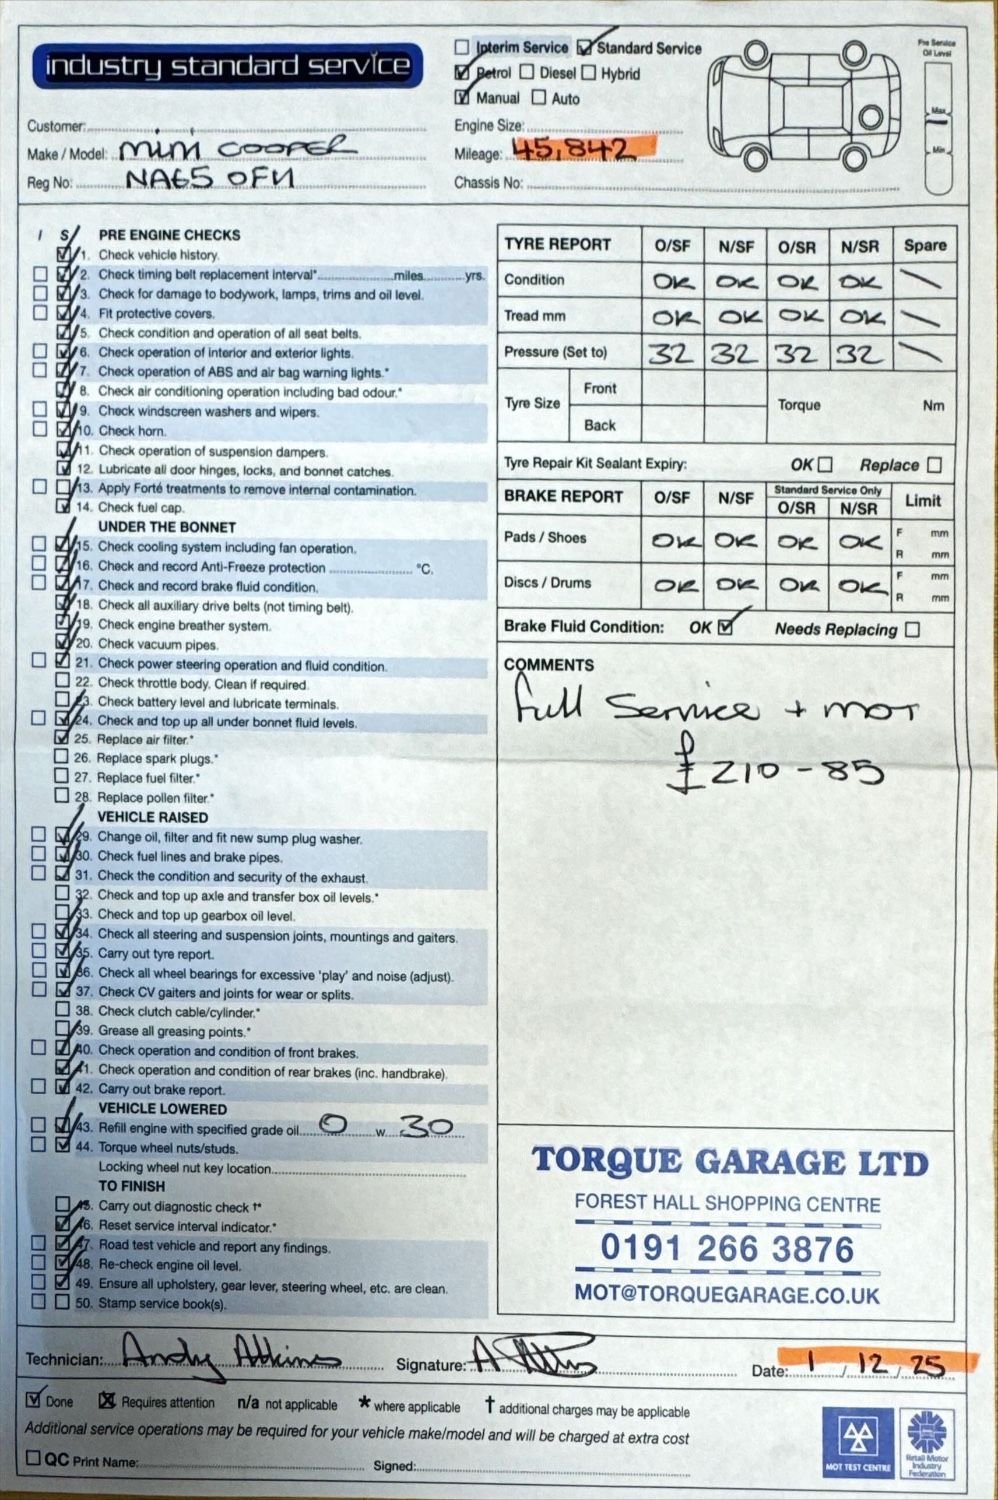 industry standard service
Interim Service Standard Service
Petrol Diesel Hybrid
Manual Auto
Pre Service
Oil Level
Max
Min
Customer:
Engine Size:
Make / Model: MINI COOPER
Mileage: 45,842
Reg No: NA65 OFN
Chassis No:
I S PRE ENGINE CHECKS
1. Check vehicle history.
2. Check timing belt replacement interval* miles yrs.
3. Check for damage to bodywork, lamps, trims and oil level.
4. Fit protective covers.
5. Check condition and operation of all seat belts.
6. Check operation of interior and exterior lights.
7. Check operation of ABS and air bag warning lights.*
8. Check air conditioning operation including bad odour.*
9. Check windscreen washers and wipers.
10. Check horn.
11. Check operation of suspension dampers.
12. Lubricate all door hinges, locks, and bonnet catches.
13. Apply Forté treatments to remove internal contamination.
14. Check fuel cap.
UNDER THE BONNET
15. Check cooling system including fan operation.
16. Check and record Anti-Freeze protection °C.
17. Check and record brake fluid condition.
18. Check all auxiliary drive belts (not timing belt).
19. Check engine breather system.
20. Check vacuum pipes.
21. Check power steering operation and fluid condition.
22. Check throttle body. Clean if required.
23. Check battery level and lubricate terminals.
24. Check and top up all under bonnet fluid levels.
25. Replace air filter.*
26. Replace spark plugs.*
27. Replace fuel filter.*
28. Replace pollen filter.*
VEHICLE RAISED
29. Change oil, filter and fit new sump plug washer.
30. Check fuel lines and brake pipes.
31. Check the condition and security of the exhaust.
32. Check and top up axle and transfer box oil levels.*
33. Check and top up gearbox oil level.
34. Check all steering and suspension joints, mountings and gaiters.
35. Carry out tyre report.
36. Check all wheel bearings for excessive 'play' and noise (adjust).
37. Check CV gaiters and joints for wear or splits.
38. Check clutch cable/cylinder.*
39. Grease all greasing points.*
40. Check operation and condition of front brakes.
41. Check operation and condition of rear brakes (inc. handbrake).
42. Carry out brake report.
VEHICLE LOWERED
43. Refill engine with specified grade oil 0 w 30
44. Torque wheel nuts/studs.
Locking wheel nut key location
TO FINISH
45. Carry out diagnostic check †*
46. Reset service interval indicator.*
47. Road test vehicle and report any findings.
48. Re-check engine oil level.
49. Ensure all upholstery, gear lever, steering wheel, etc. are clean.
50. Stamp service book(s).
TYRE REPORT O/SF N/SF O/SR N/SR Spare
Condition OK OK OK OK
Tread mm OK OK OK OK
Pressure (Set to) 32 32 32 32
Tyre Size Front Torque Nm
Back
Tyre Repair Kit Sealant Expiry: OK Replace
BRAKE REPORT O/SF N/SF Standard Service Only Limit
O/SR N/SR
Pads / Shoes OK OK OK OK F mm
R mm
Discs / Drums OK OK OK OK F mm
R mm
Brake Fluid Condition: OK Needs Replacing
COMMENTS
Full Service + MOT
£210-85
TORQUE GARAGE LTD
FOREST HALL SHOPPING CENTRE
0191 266 3876
MOT@TORQUEGARAGE.CO.UK
Technician: Andy Atkins Signature: A Atkins Date: 1 / 12 / 25
Done Requires attention n/a not applicable * where applicable † additional charges may be applicable
Additional service operations may be required for your vehicle make/model and will be charged at extra cost
QC Print Name: Signed:
MOT TEST CENTRE
Retail Motor
Industry
Federation